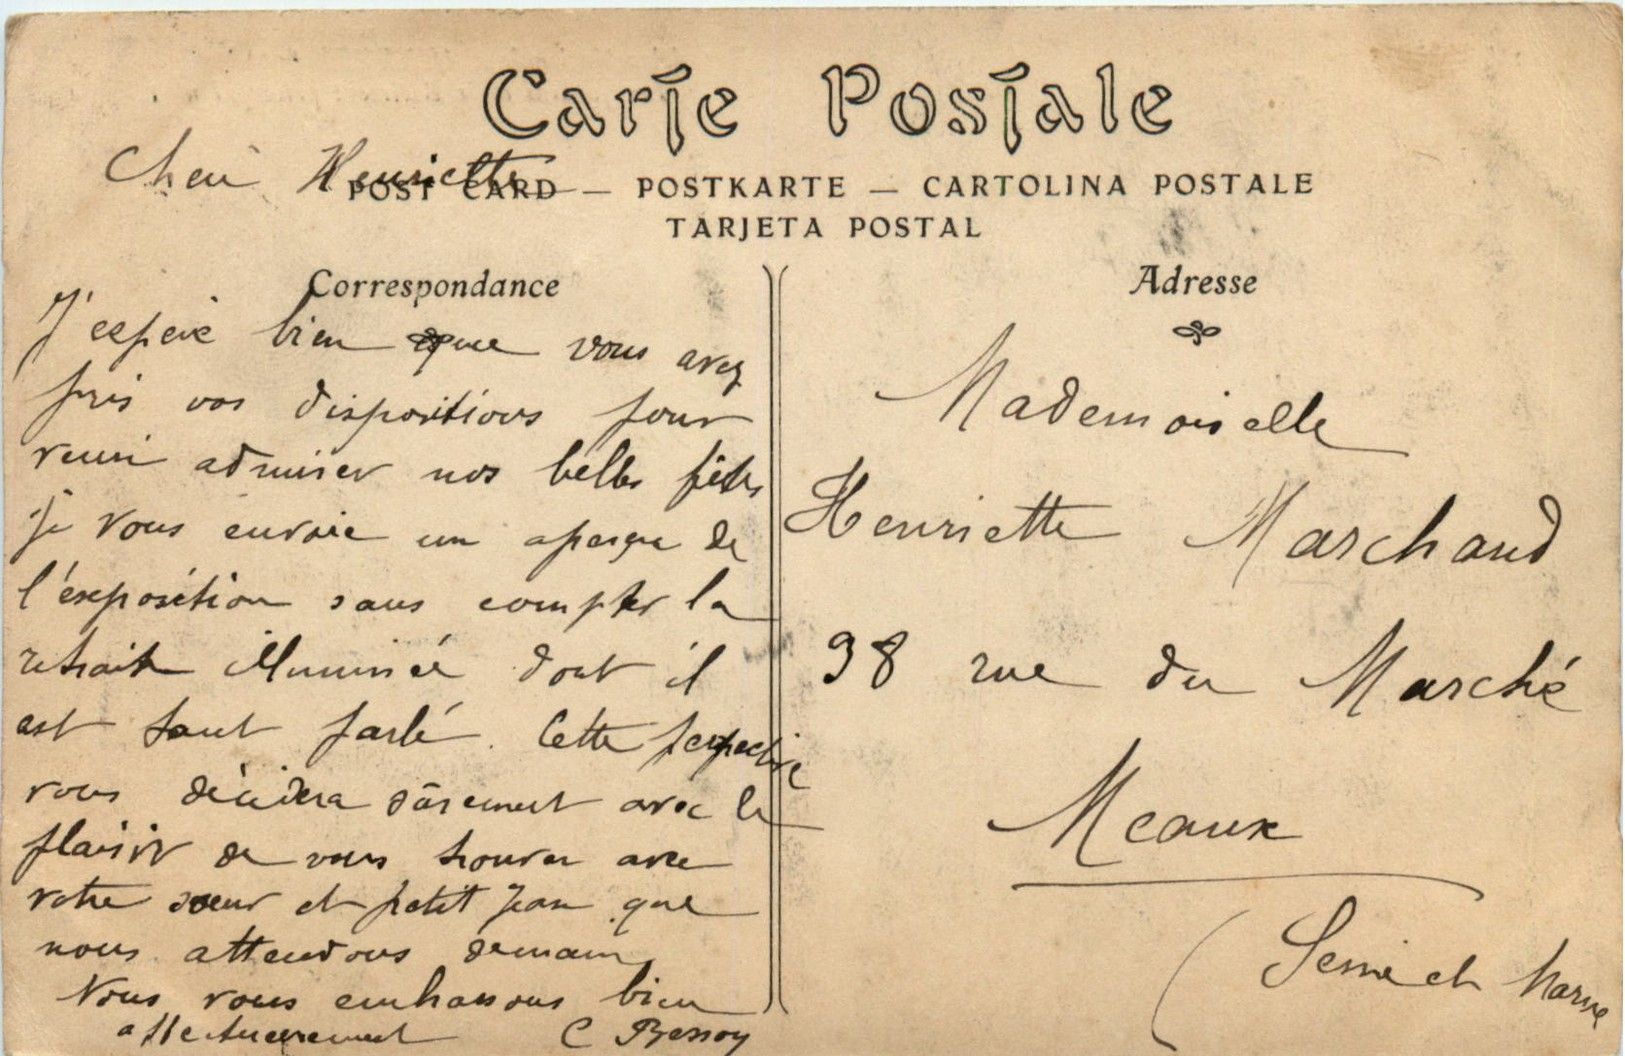 Carte Postale
Cheri Henriette
POST CARD — POSTKARTE — CARTOLINA POSTALE
TARJETA POSTAL
Correspondance
J'espère bien que vous avez
pris vos dispositions pour
venir admirer nos belles fêtes
je vous envoie un aperçu de
l'exposition sans compter la
retraite illuminée dont il
est tant parlé. Cette perspective
vous décidera sûrement avec le
plaisir de vous trouver avec
votre sœur et petit Jean que
nous attendons demain
Nous vous embrassons bien
affectueusement C Bessoy
Adresse
Mademoiselle
Henriette Marchand
98 rue du Marché
Meaux
(Seine et Marne